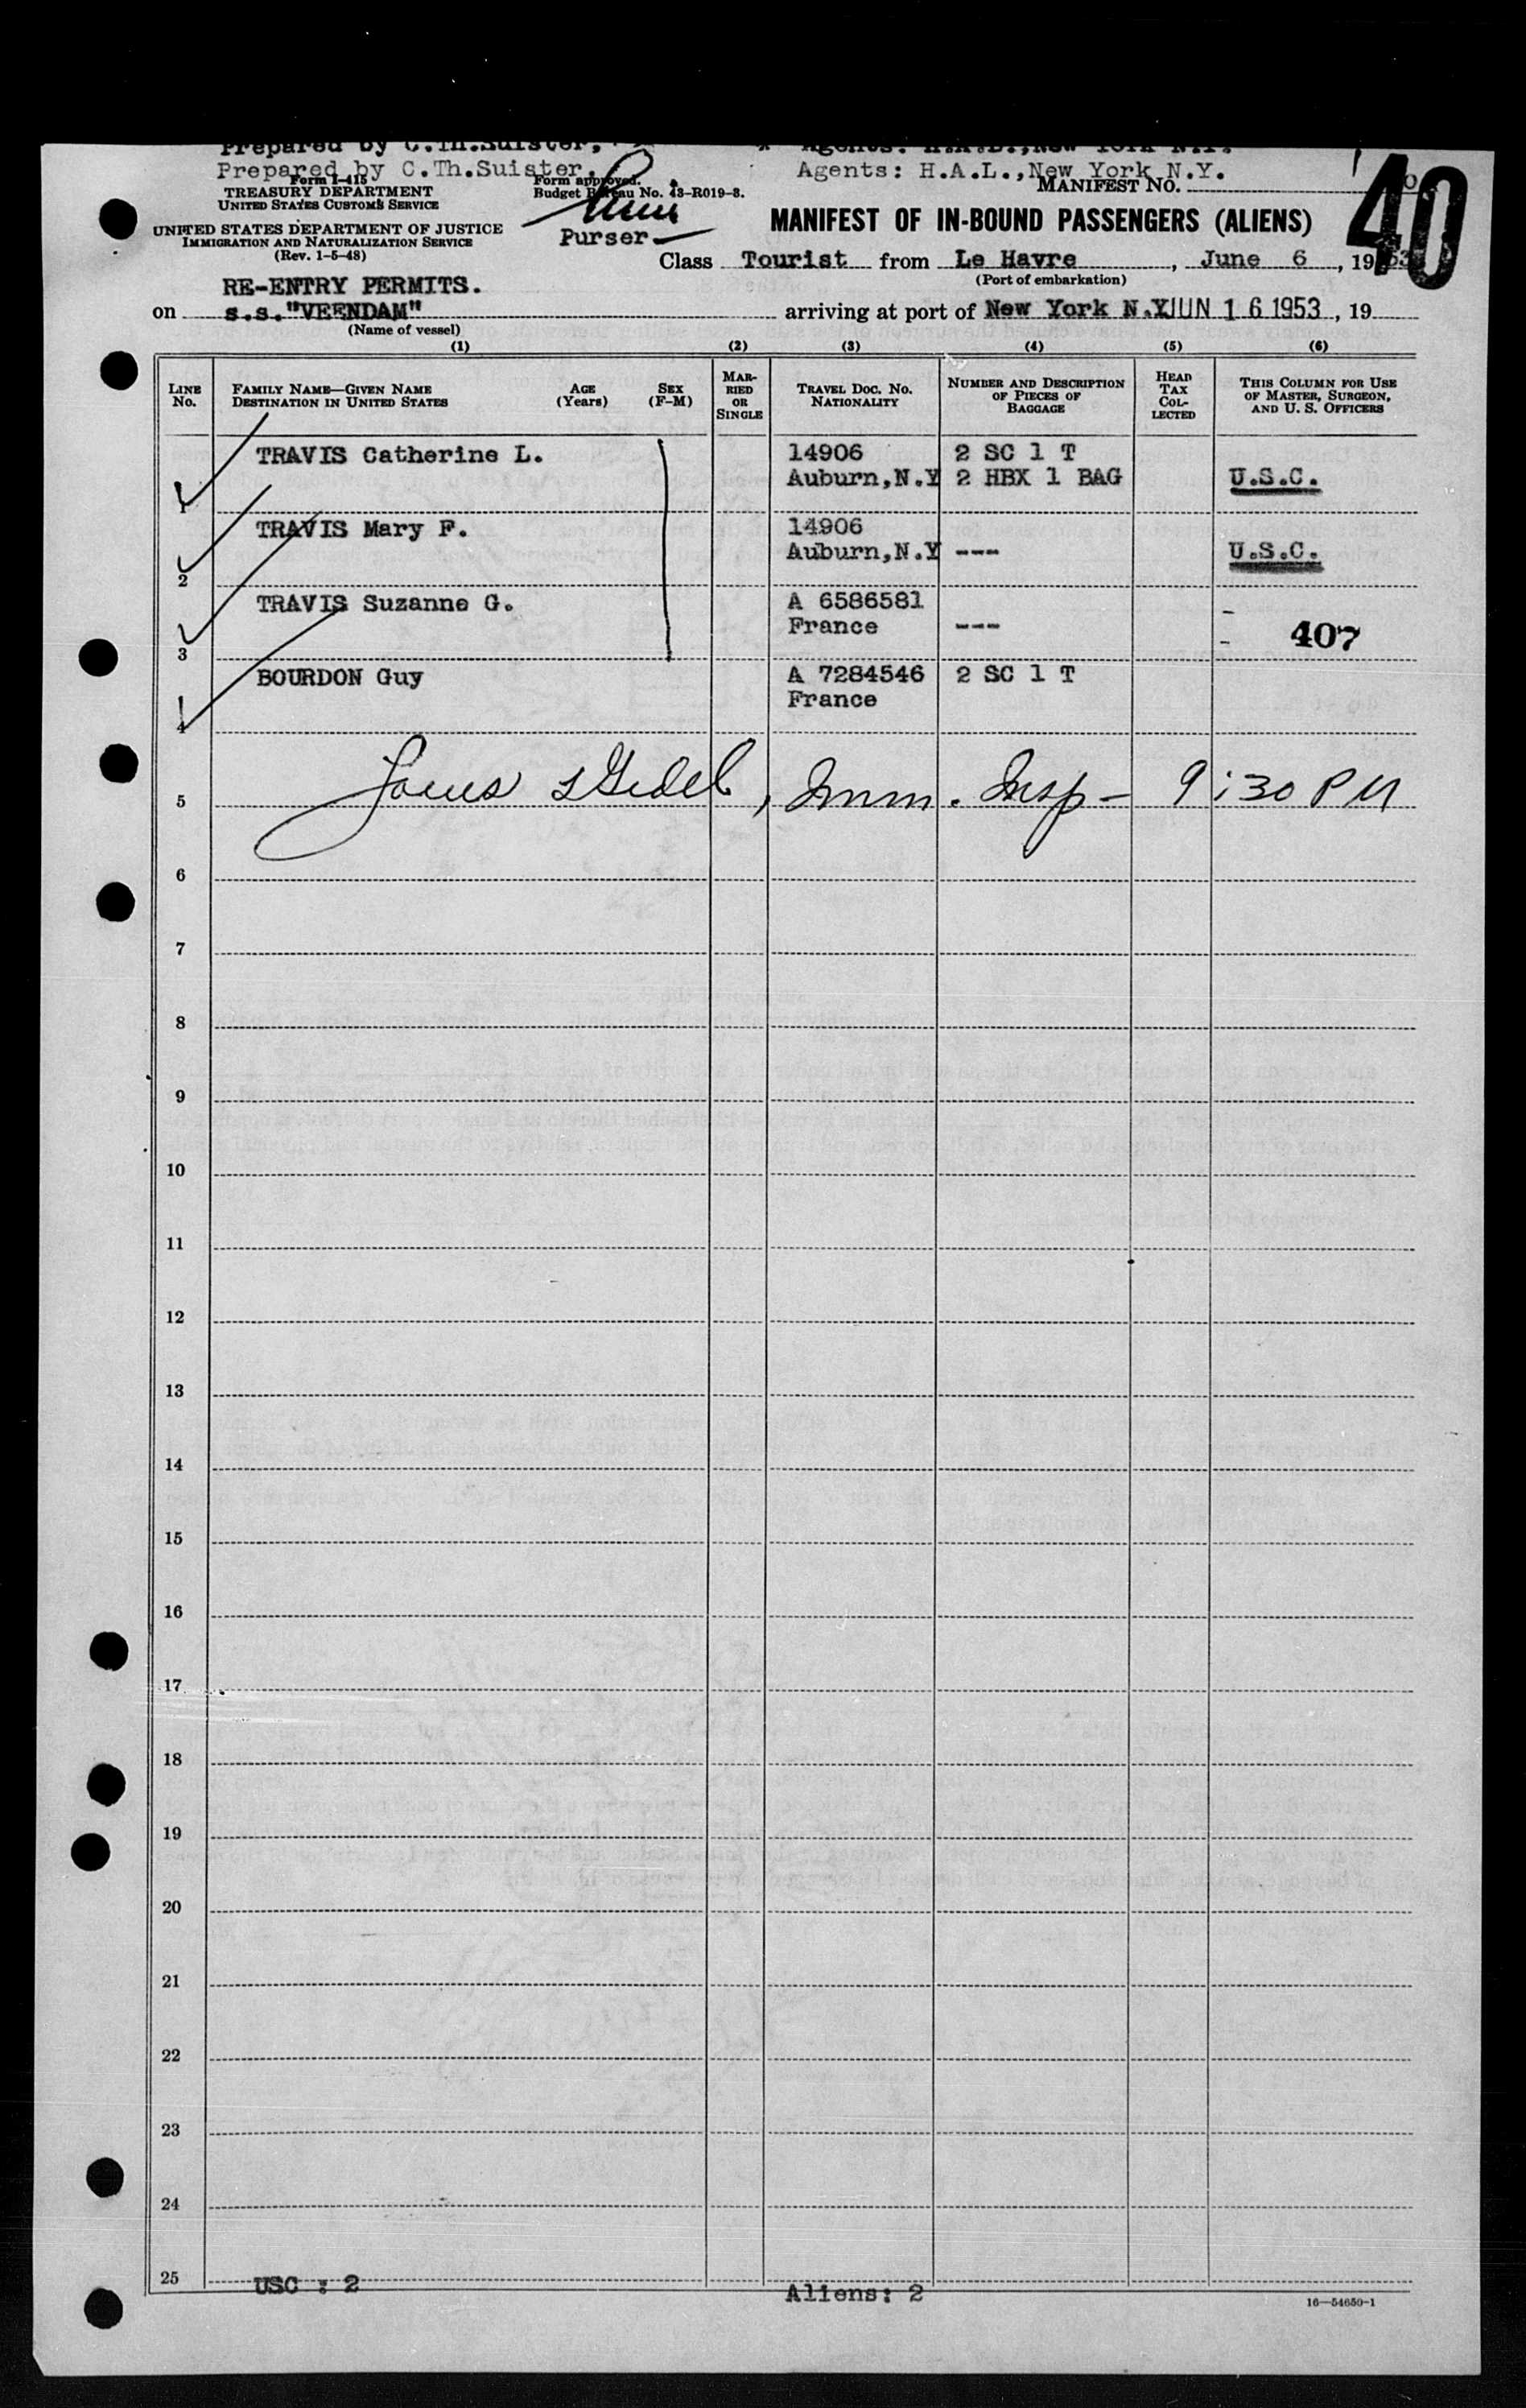 Prepared by C.Th.Suister,
Agents: H.A.L.,New York N.Y.
Prepared by C.Th.Suister,
Agents: H.A.L.,New York N.Y.
Form I-415
TREASURY DEPARTMENT
UNITED STATES CUSTOMS SERVICE
Form approved.
Budget Bureau No. 43-R019-3.
MANIFEST NO.
40
UNITED STATES DEPARTMENT OF JUSTICE
IMMIGRATION AND NATURALIZATION SERVICE
(Rev. 1-5-48)
Purser
MANIFEST OF IN-BOUND PASSENGERS (ALIENS)
Class Tourist from Le Havre, June 6, 1953
(Port of embarkation)
RE-ENTRY PERMITS.
on s.s."VEENDAM" arriving at port of New York N.Y JUN 16 1953, 19
(Name of vessel)
(1) (2) (3) (4) (5) (6)
LINE No. FAMILY NAME—GIVEN NAME DESTINATION IN UNITED STATES AGE (Years) SEX (F-M) MARRIED OR SINGLE TRAVEL DOC. NO. NATIONALITY NUMBER AND DESCRIPTION OF PIECES OF BAGGAGE HEAD TAX COLLECTED THIS COLUMN FOR USE OF MASTER, SURGEON, AND U. S. OFFICERS
TRAVIS Catherine L. 14906 2 SC 1 T
1 Auburn,N.Y 2 HBX 1 BAG U.S.C.
TRAVIS Mary F. 14906
2 Auburn,N.Y --- U.S.C.
TRAVIS Suzanne G. A 6586581 -
3 France --- - 407
BOURDON Guy A 7284546 2 SC 1 T
4 France
5 Imm. Insp - 9:30 PM
6
7
8
9
10
11
12
13
14
15
16
17
18
19
20
21
22
23
24
25 USC : 2 Aliens: 2
16—54650-1